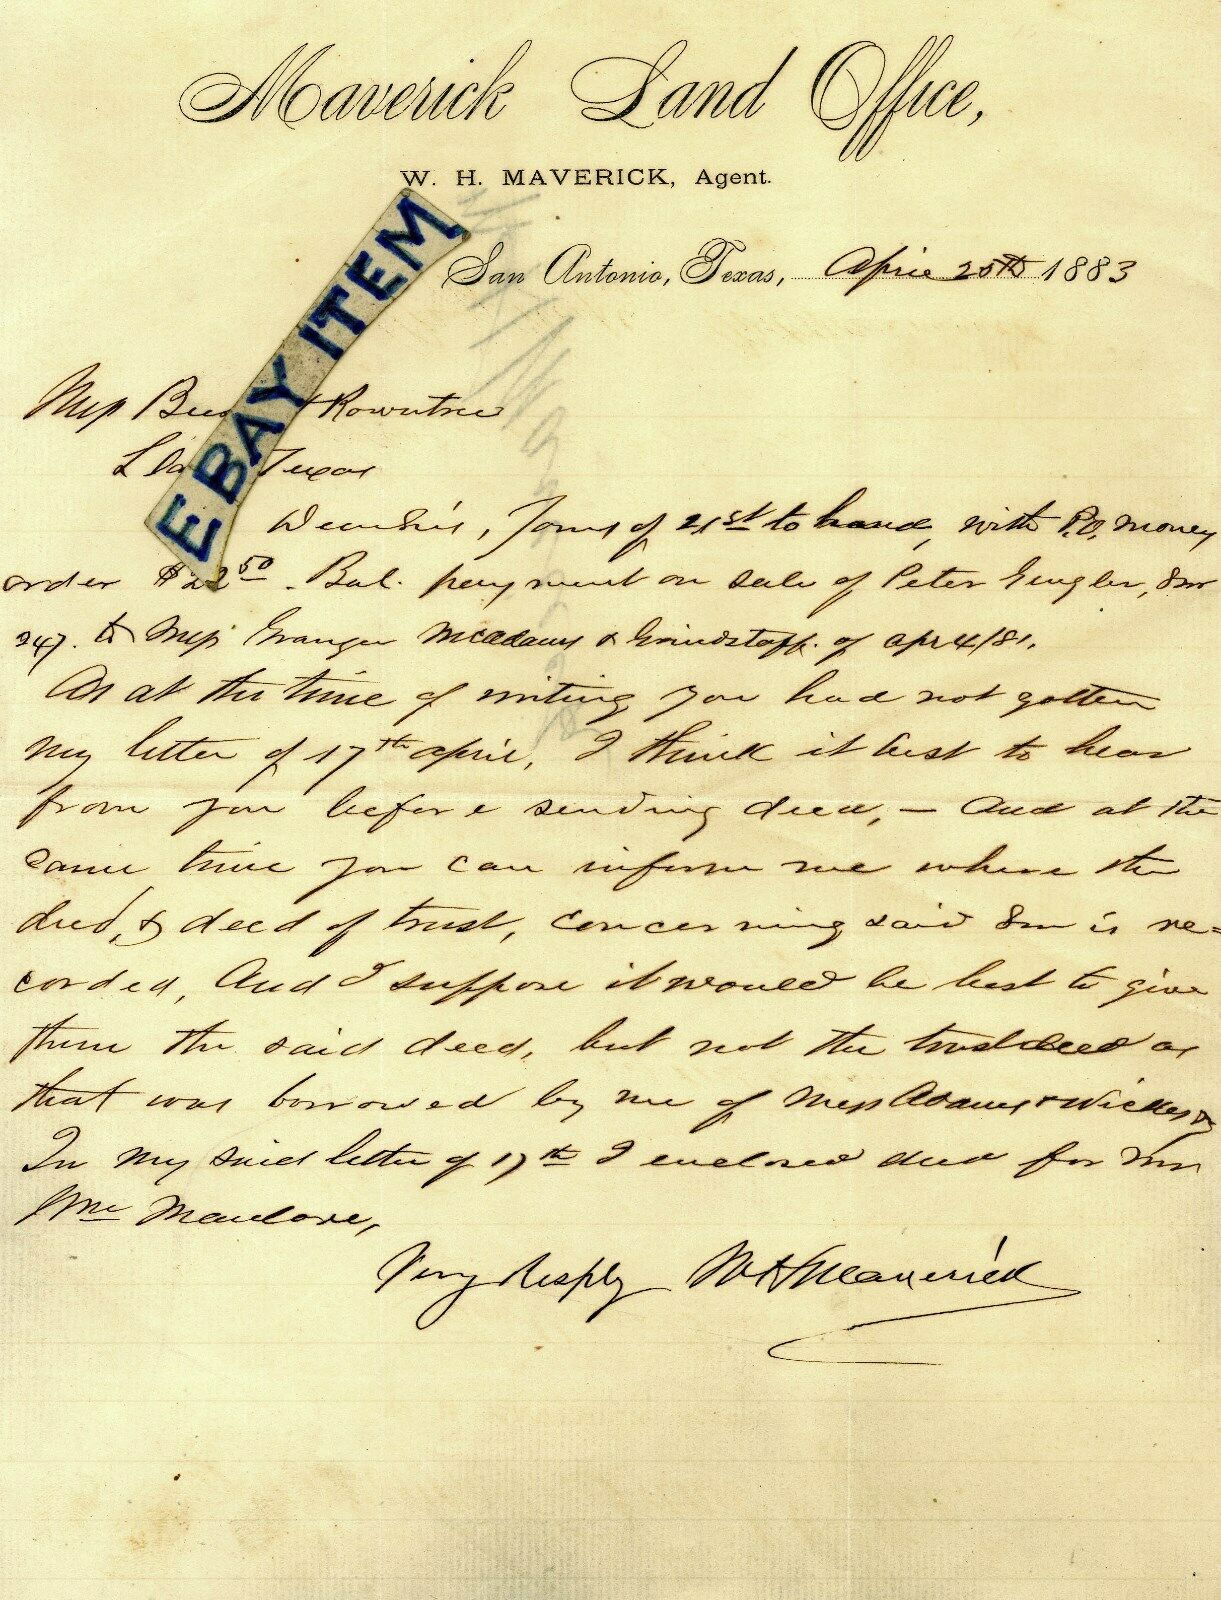 Maverick Land Office,
W. H. MAVERICK, Agent.
San Antonio, Texas, April 25th 1883
EBAY ITEM
Rowntree
Texas
Dear Sirs, Yours of 21st to hand, with P.O. money
order $22 50. Bal. payment on sale of Peter
247. to Granger McAdams & Grindstaff. of apr 4/81.
As at the time of writing you had not gotten
my letter of 17th april, I think it best to hear
from you before sending deed, — And at the
same time you can inform me where the
deed, & deed of trust, concerning said is re=
corded, And I suppose it would be best to give
them the said deed, but not the trust deed as
that was borrowed by me of Mess Adams & Wickes
In my said letter of 17th I enclosed deed for
Wm Manlove,
Very Resply WHMaverick